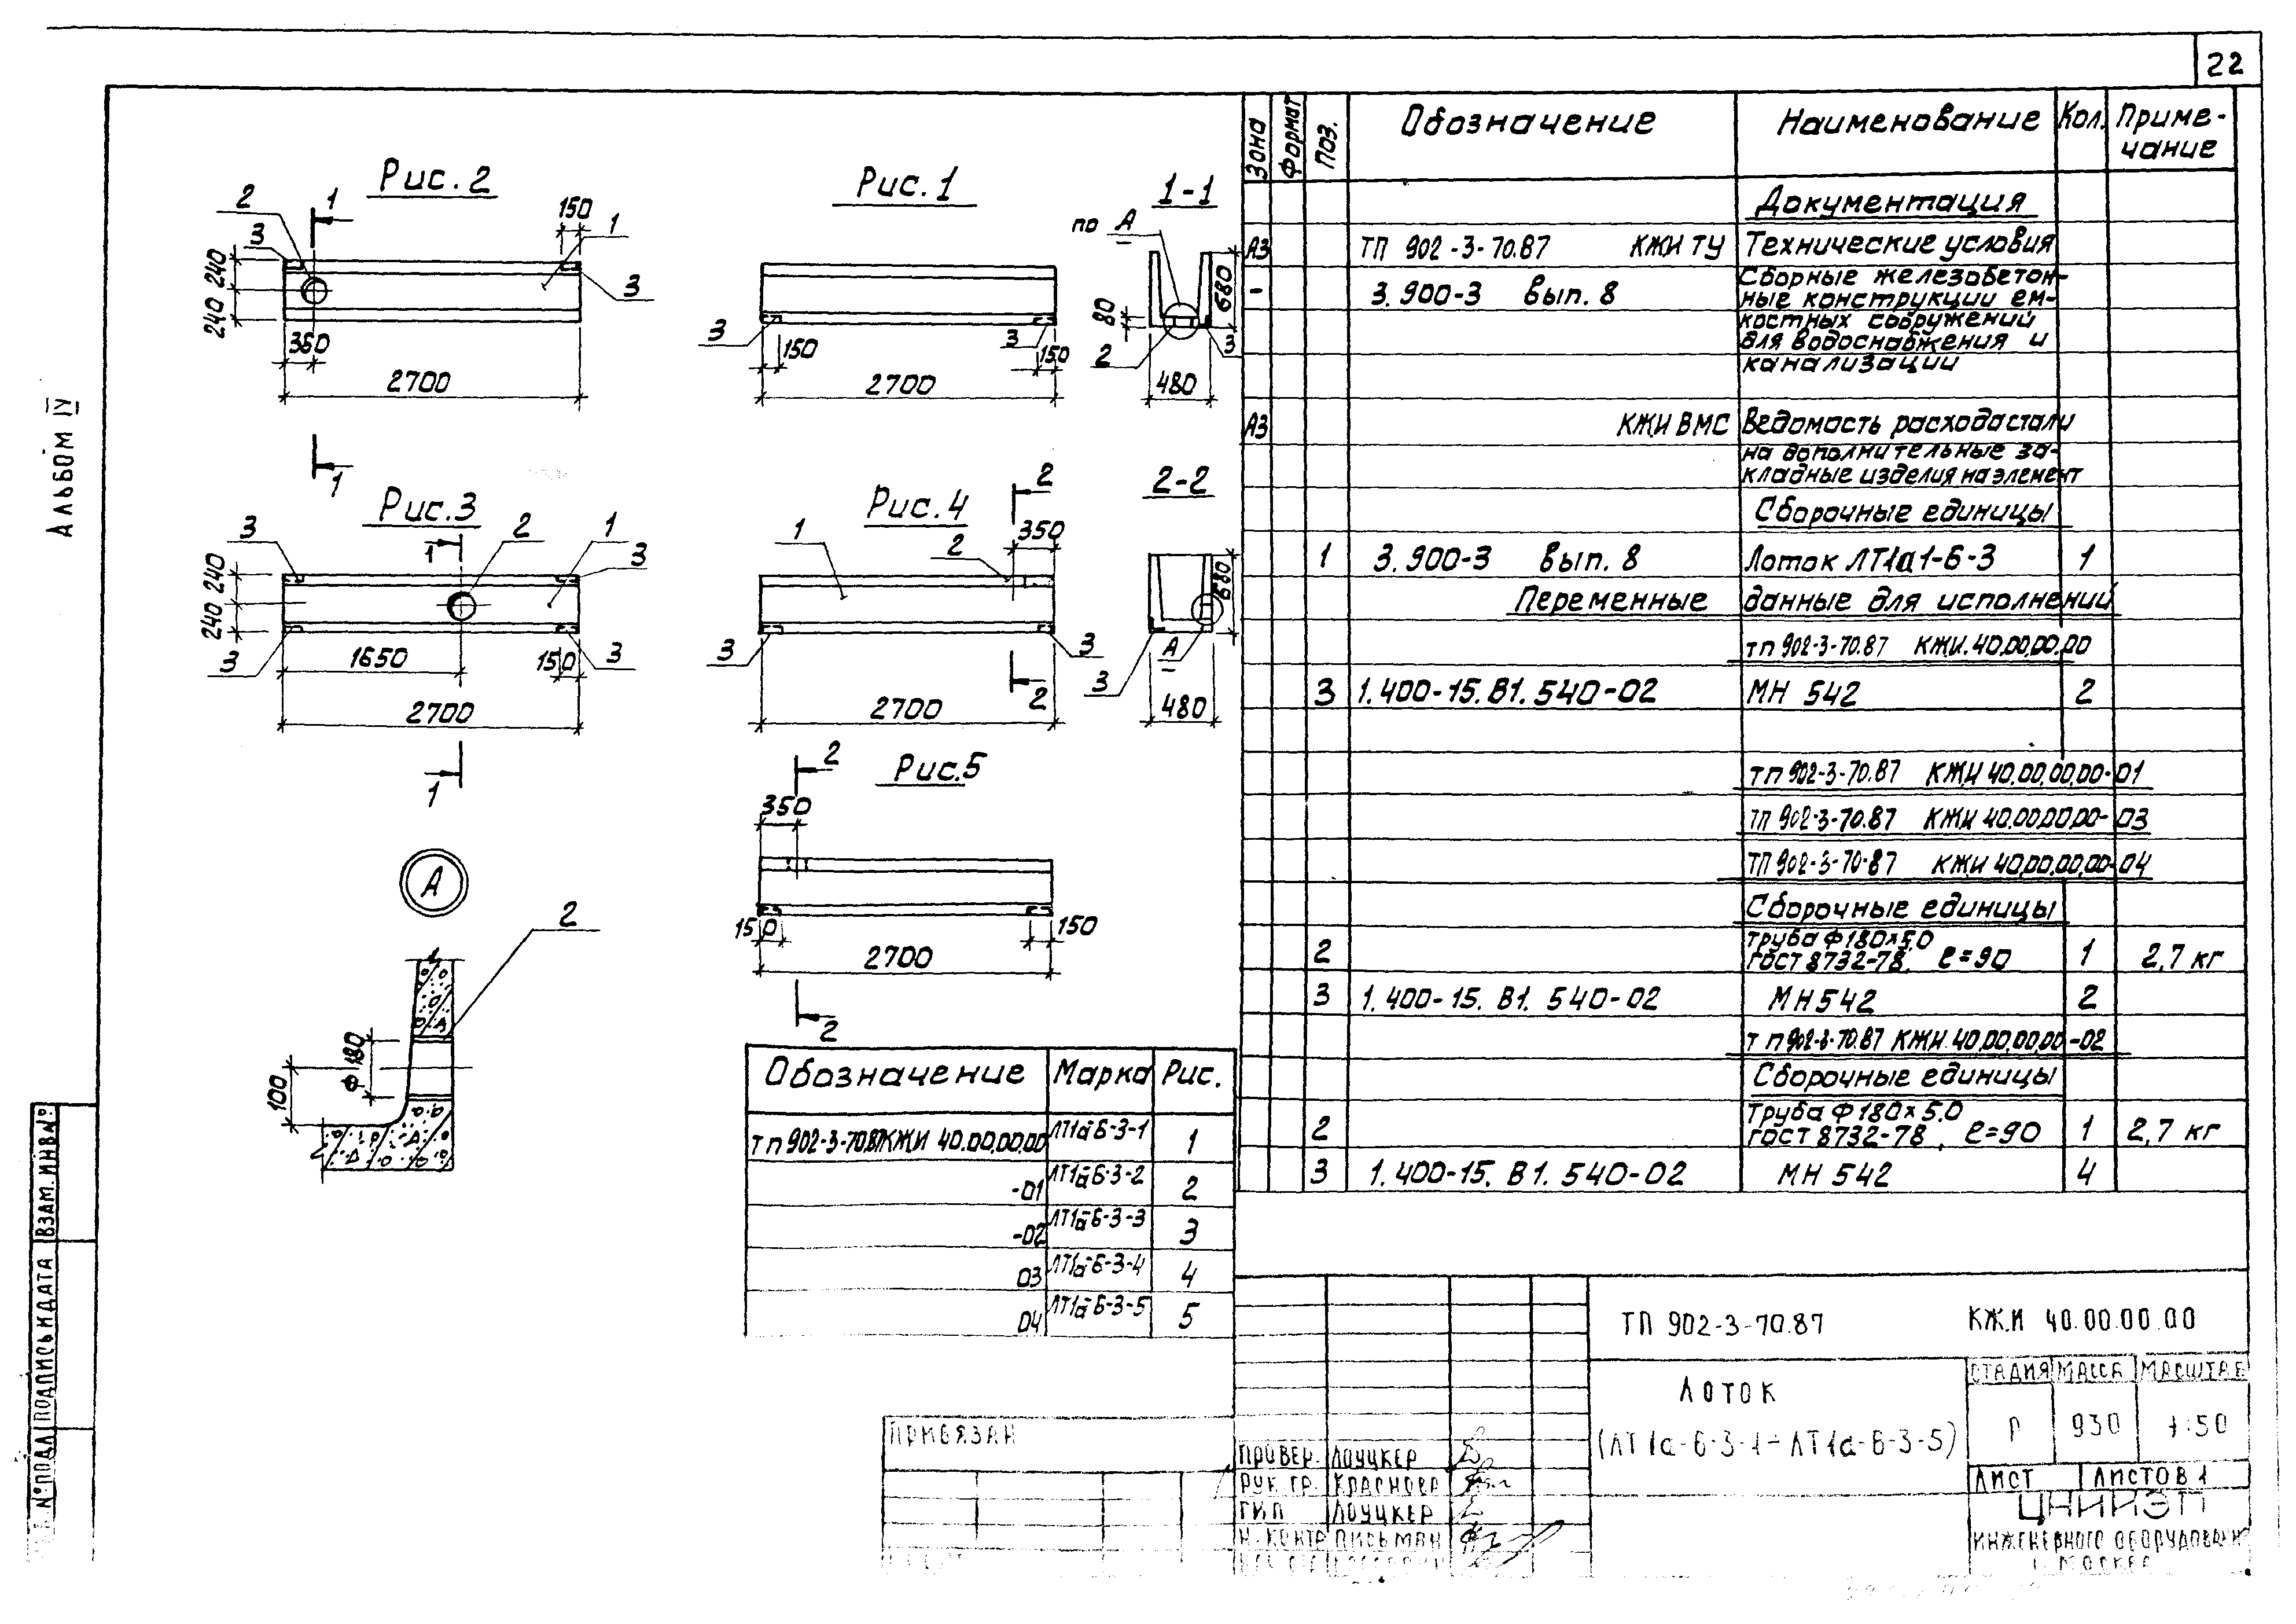 22
Альбом IV
Рис. 2
2
1
3
150
1
3
240
240
350
2700
1
Рис. 1
3
3
150
150
2700
1-1
по А
80
680
2
3
480
Рис. 3
3
1
2
1
3
240
240
3
1650
150
3
2700
1
Рис. 4
1
2
2
350
3
3
2
2700
2-2
680
А
3
480
Рис. 5
2
350
150
150
2700
2
А
2
ф180
100
Обозначение Марка Рис.
ТП 902-3-70.87 КЖИ 40.00.00.00 ЛТ1а-6-3-1 1
-01 ЛТ1а-6-3-2 2
-02 ЛТ1а-6-3-3 3
03 ЛТ1а-6-3-4 4
04 ЛТ1а-6-3-5 5
Зона Формат Поз. Обозначение Наименование Кол. Приме-
чание
Документация
А3 ТП 902-3-70.87 КЖИ ТУ Технические условия
- 3.900-3 вып. 8 Сборные железобетон-
ные конструкции ем-
костных сооружений
для водоснабжения и
канализации
А3 КЖИ ВМС Ведомость расхода стали
на дополнительные за-
кладные изделия на элемент
Сборочные единицы
1 3.900-3 вып. 8 Лоток ЛТ1а1-6-3 1
Переменные данные для исполнений
тп 902-3-70.87 КЖИ.40.00.00.00
3 1.400-15.В1.540-02 МН 542 2
тп 902-3-70.87 КЖИ 40.00.00.00-01
ТП 902-3-70.87 КЖИ 40.00.00.00-03
ТП 902-3-70-87 КЖИ 40.00.00.00-04
Сборочные единицы
2 Труба ф180х5,0
ГОСТ 8732-78, ℓ=90 1 2,7 кг
3 1.400-15.В1.540-02 МН542 2
тп 902-3-70.87 КЖИ.40.00.00.00-02
Сборочные единицы
2 Труба ф180х5.0
ГОСТ 8732-78, ℓ=90 1 2,7 кг
3 1.400-15.В1.540-02 МН 542 4
ТП 902-3-70.87 КЖИ 40.00.00.00
Лоток
(ЛТ1а-6-3-1÷ЛТ1а-6-3-5)
Стадия Масса Масштаб
Р 930 1:50
Лист Листов 1
ЦНИИЭП
инженерного оборудования
г. Москва
Привязан
Провер. Лоуцкер
Рук. гр. Краснова
ГИП Лоуцкер
Н. контр Письман
Взам. инв №
Подпись и дата
№ подл